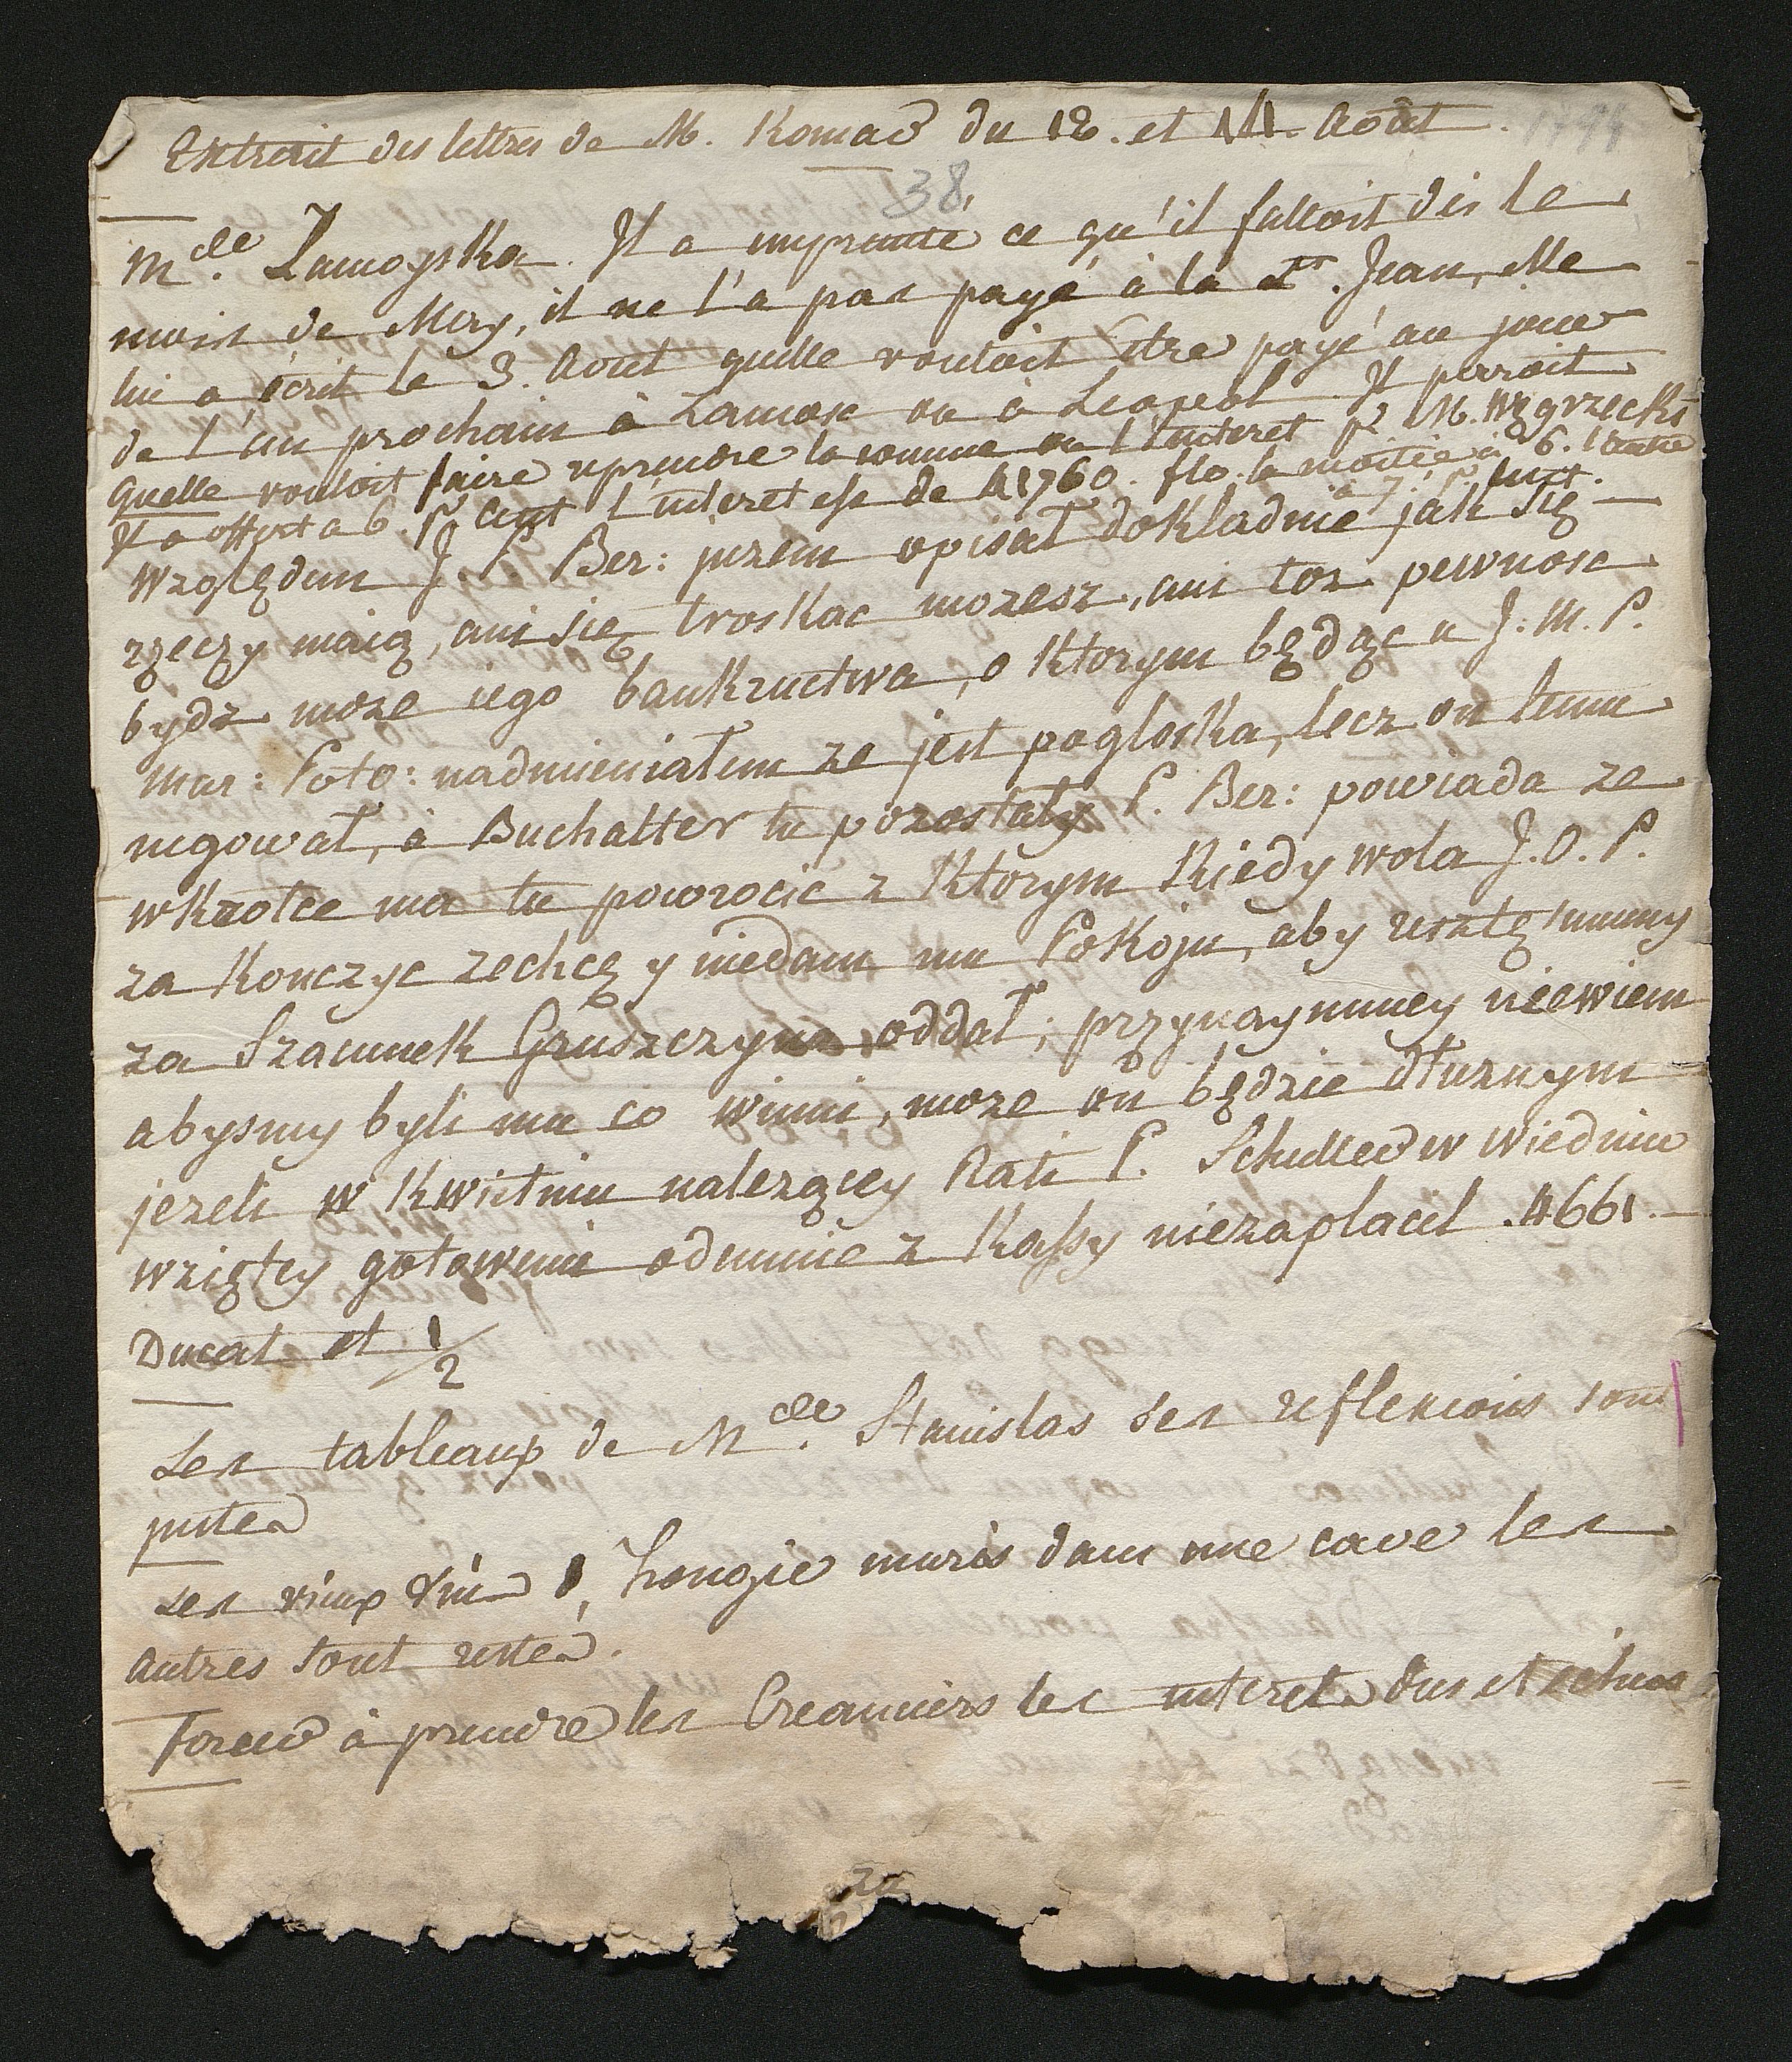 Extrait des lettres de M. Konrad du 12. et 14. Août. 1794
38
Mde. Zamoyska. Il a emprunté ce qu'il falloit dès le
mois de May, il ne l'a pas payé à la St. Jean, elle
lui a écrit le 3. Aout quelle vouloit être payé au jour
de l'an prochain à Zamosc ou à Leopol. Il paroit
quelle vouloit faire reprendre la somme ou l'interet pr M. Węgrzecki
Il a offert a 6. pr Cent l'interet est de 41760. flo. la moitié à 6. l'autre
à 7. pr Cent.
Względem J. P. Ber: jużem opisał dokladnie jak się
rzęczy maią, ani się troskac mozesz, ani toz pewnosc
bydz moze iego bankructwa, o ktorym będąc u J. M. P.
Mar: Poto: nadmieniałem ze jest pogloska, lecz on temu
negował, à Buchalter tu pozostały P. Ber: powiada ze
wkrotce ma tu powrocic z ktorym kiedy wola J. O. P.
za konczyc zechcę y niedam mu Pokoju, aby resztę summy
za Szacunek Gruszczyna oddał; przynaymniey niewiem
abysmy byli mu co winni, moze on będzie dłuznym
jezeli w Kwietniu nalezącey Rati P. Schuller w Wiedniu
wziętey gotowemi odemnie z Kassy niezaplacil. 4661.
Ducat et 1/2
Les tableaux de Mde. Stanislas ses reflexions sont
justes
Les vieux vins d'Hongrie murés dans une cave les
autres sont restés.
Forcer à prendre les Creanciers les interets dus et echus